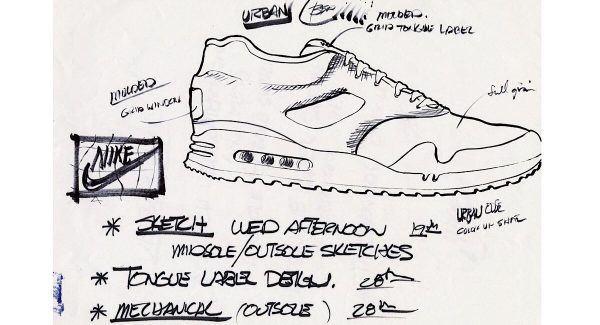 URBAN
MOLDED.
GRID TONGUE LABEL
MOLDED
GRID WINDOW
full grain
NIKE
URBAN
COLOR UP
* SKETCH WED AFTERNOON 19th
MIDSOLE/OUTSOLE SKETCHES
* TONGUE LABEL DESIGN. 28th
* MECHANICAL (OUTSOLE) 28th